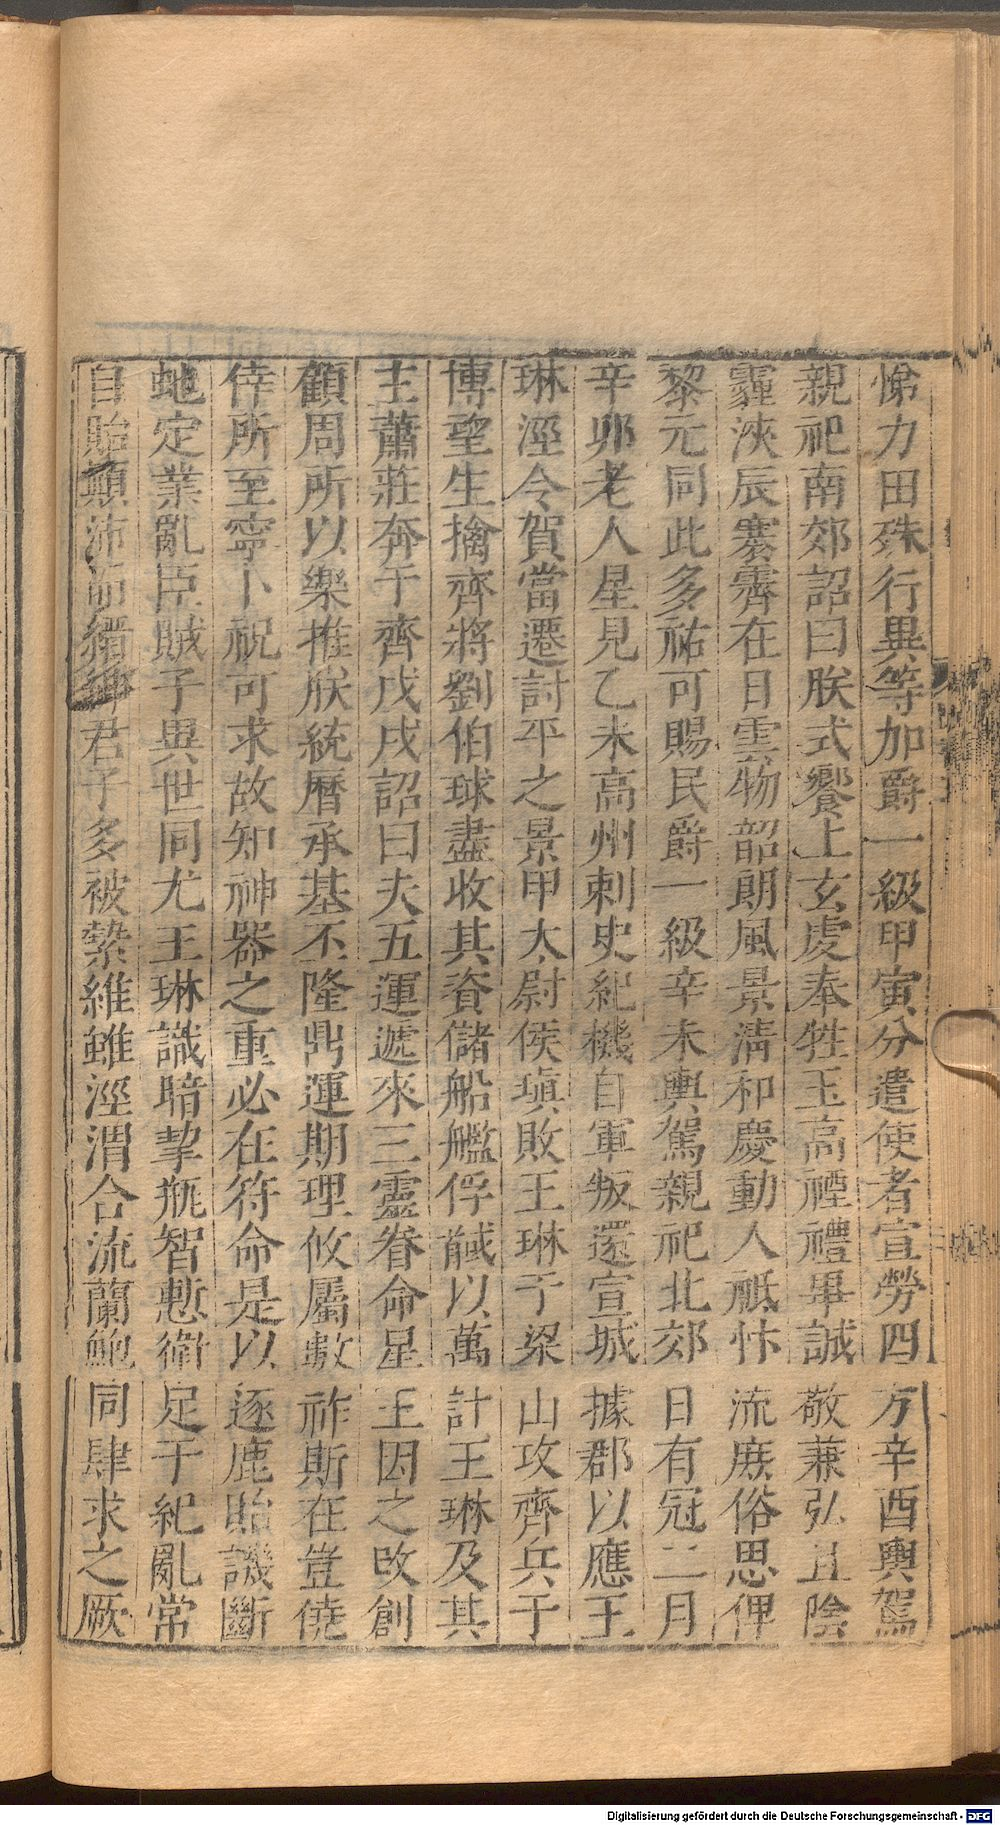 悌力田殊行異等加爵一級甲寅分遣使者宣勞四方辛酉輿駕
親祀南郊詔曰朕式饗上玄虔奉牲玉高禋禮畢誠敬兼弘且陰
霾浹辰褰霽在日雲物韶朗風景清和慶動人祗忭流庶俗思俾
黎元同此多祐可賜民爵一級辛未輿駕親祀北郊日有冠二月
辛卯老人星見乙未高州刺史紀機自軍叛還宣城據郡以應王
琳涇令賀當遷討平之景甲太尉侯瑱敗王琳于梁山攻齊兵于
博望生擒齊將劉伯球盡收其資儲船艦俘馘以萬計王琳及其
主蕭莊奔于齊戊戌詔曰夫五運遞來三靈眷命星王因之改創
顧周所以樂推朕統曆承基丕隆鼎運期理攸屬數祚斯在豈僥
倖所至寧卜祝可求故知神器之重必在符命是以逐鹿貽譏斷
虵定業亂臣賊子異世同尤王琳識暗挈瓶智慙衛足干紀亂常
自貽顛沛而縉紳君子多被縶維雖涇渭合流蘭鮑同肆求之厥
Digitalisierung gefördert durch die Deutsche Forschungsgemeinschaft - DFG